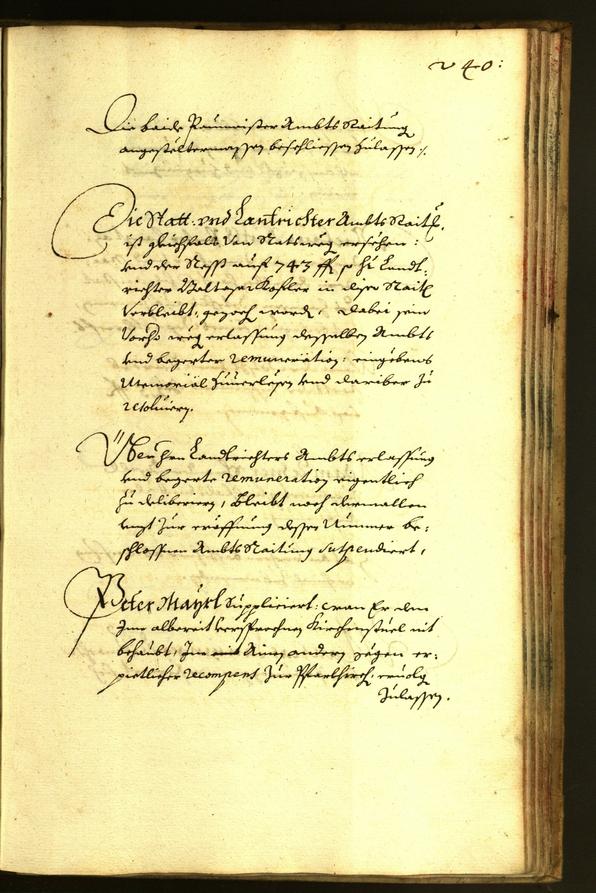 240:
Die beide Paumeister Ambts Raitung
angesteltermassen beschliessen zulassen /.
Die Statt: vnd Landtrichter Ambts Raitt:
ist gleichfals von Ratswegen ersehen:
vnd der Rest auf 743 ff so Hr: Landt:
richter Balthasar Kofler in diser Raitt:
verbleibt, worden, dabei sein
wegen erlassung desselben Ambts
vnd begerter remuneration: eingebens
Memorial zuuerlesen vnd dariber zu
resoluiern.
Vber Hrn Landtrichters Ambts erlassung
vnd begerte remuneration eigentlich
zu deliberiern, bleibt noch dermallen
vnzt zur eröffnung dessen Nummer be:
schlossnen Ambts Raitung suspendiert,
Peter Mayrl Suppliciert: wan Er den
Ime albereit versprochnen Kirchenstuel nit
behaubt, Ime ainen andern gegen er:
pietlicher recompens zur Pfarkirch: eruolg
zulassen.